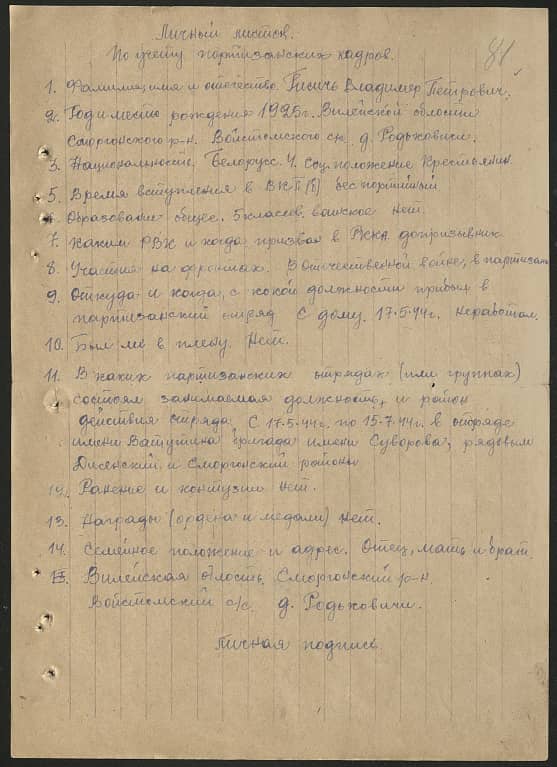 Личный листок.
По учету партизанских кадров.
81
1. Фамилия имя и отечество. Владимер Петрович.
2. Год и место рождения 1925г. Вилейской области
Сморгонского р-н. Войстомского с/с. д. Родьковичи.
3. Национальность. Белорусс. 4. Соц. положение Крестьянин.
5. Время вступления в ВКП(б) беспортийный
6. Образование общее. 5 класов. воиское нет.
7. Каким РВК и когда призван в РККА допризывник
8. Участия на фронтах. В отечественной войне, в партизан
9. Откуда и когда, с кокой должности прибыл в
партизанский отряд. С дому. 17.5.44г. неработал.
10. Был ли в плену. Нет.
11. В каких партизанских отрядах (или группах)
состоял занимаемая должность, и район
действия отряда. С 17.5.44г. по 15.7.44г. в отряде
имени Ватутина бригада имени Суворова, рядовым
Дисенский и Сморгонский районы
12. Ранение и контузии нет.
13. Награды (ордена и медали) нет.
14. Семейное положение и адрес. Отец, мать и брат.
Вилейская область. Сморгонский р-н.
Войстомский с/с. д. Родьковичи.
Личная подпись.